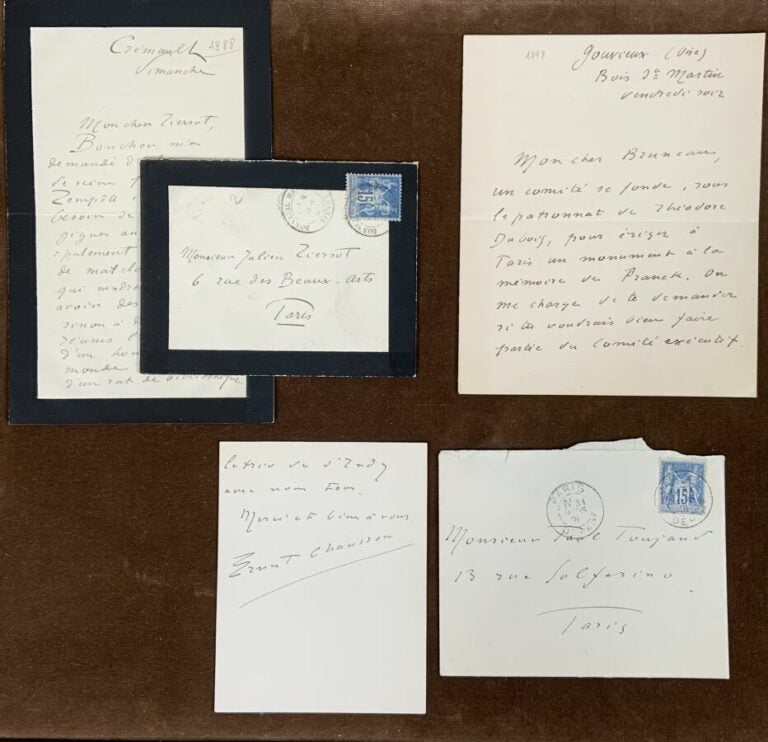 Crémault 1888
Dimanche
Mon cher Tiersot,
Bouchor m'a
demandé
Tempête
besoin de
gigues
de
qui
avoir des
sinon à
réunis
d'un
monde
d'un rat de bibliothèque.
Monsieur Julien Tiersot
6 rue des Beaux-Arts
Paris
15
1898
Gouvieux (Oise)
Bois St Martin
vendredi soir
Mon cher Bruneau,
un comité se fonde, sous
le patronnat de Théodore
Dubois, pour ériger à
Paris un monument à la
mémoire de Franck. On
me charge de te demander
si tu voudrais bien faire
partie du Comité exécutif.
le trio de d'Indy
avec nous tous.
Merci et bien à vous.
Ernest Chausson
PARIS
15
DEC
Monsieur Paul Poujaud
13 rue Solférino
Paris